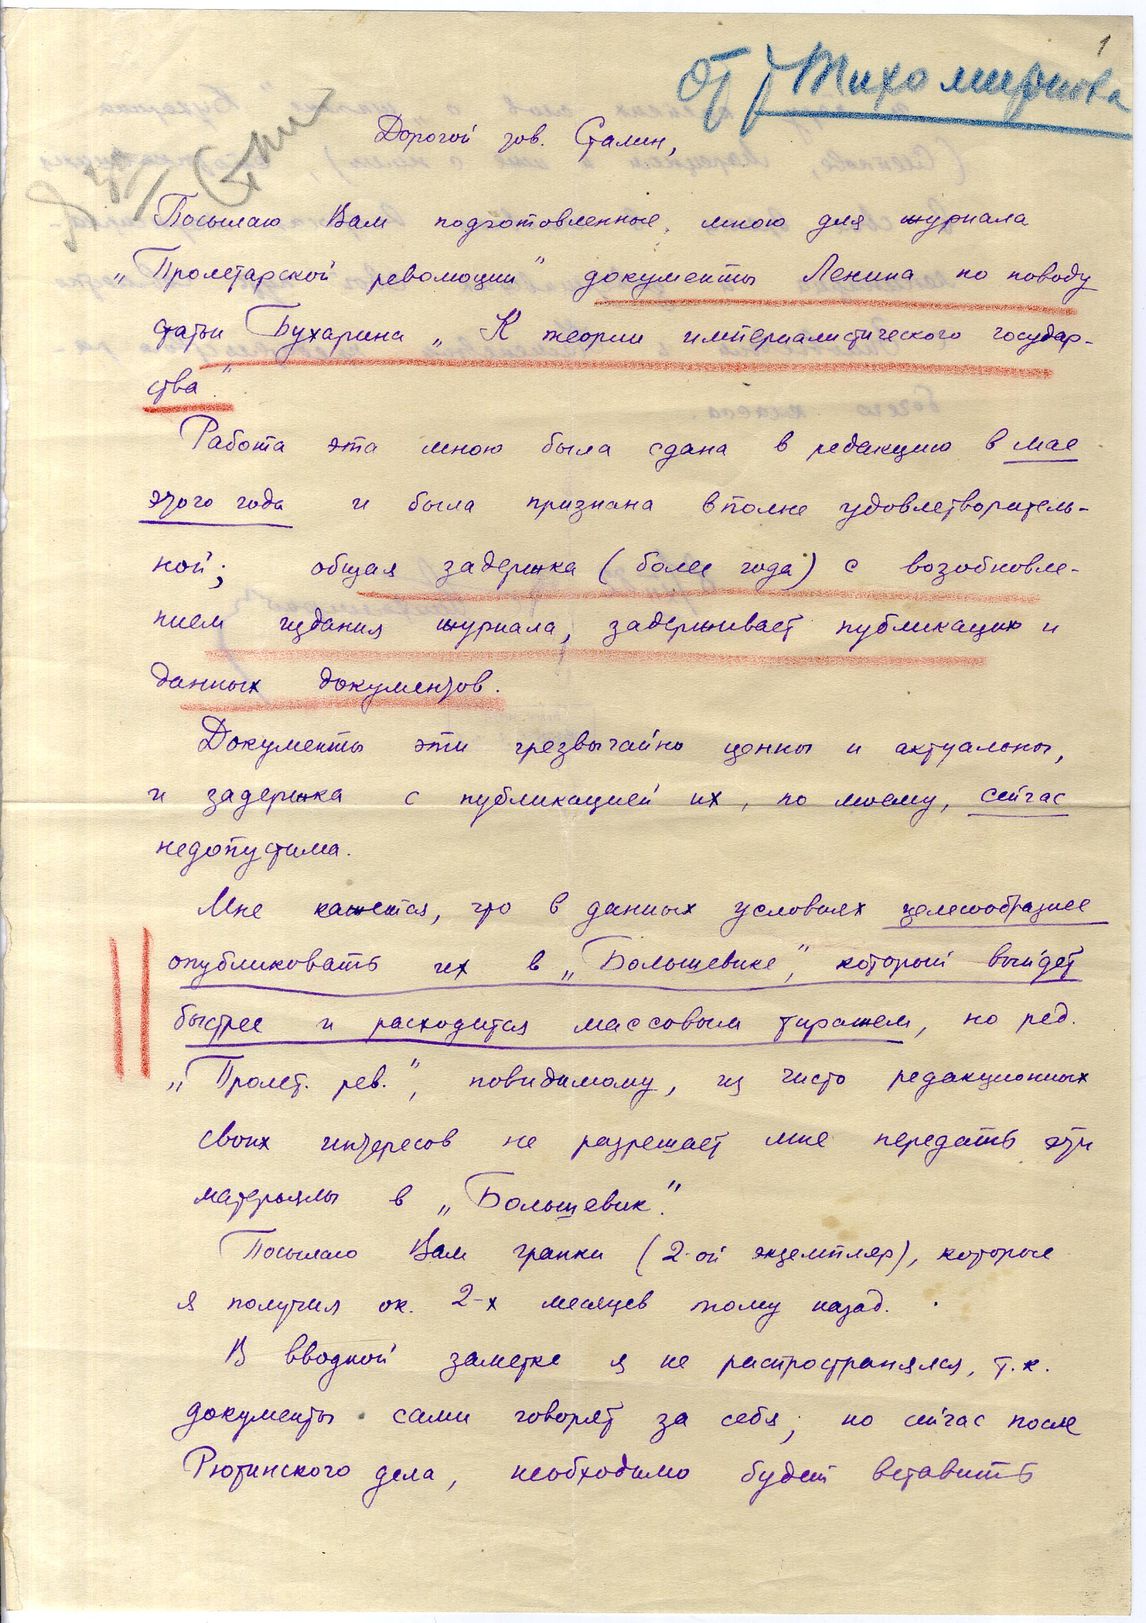 1
От т. Тихомирнова
Дорогой тов. Сталин,
Посылаю Вам подготовленные, мною для журнала
„Пролетарской революции" документы Ленина по поводу
статьи Бухарина „К теории империалистического государ-
ства".
Работа эта мною была сдана в редакцию в мае
этого года и была признана вполне удовлетворитель-
ной; общая задержка (более года) с возобновле-
нием издания журнала, задерживает публикацию и
данных документов.
Документы эти чрезвычайно ценны и актуальны,
и задержка с публикацией их, по моему, сейчас
недопустима.
Мне кажется, что в данных условиях целесообразнее
опубликовать их в „Большевике", который выйдет
быстрее и расходится массовым тиражем, но ред.
„Пролет. рев.", повидимому, из чисто редакционных
своих интересов не разрешает мне передать эти
матерьялы в „Большевик".
Посылаю Вам гранки (2-ой экземпляр), которые
я получил ок. 2-х месяцев тому назад.
В вводной заметке я не распространялся, т.к.
документы сами говорят за себя; но сейчас после
Рютинского дела, необходимо будет вставить